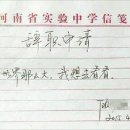 河南省实验中学信笺
辞职申请
世界那么大，我想去看看。
2015.4